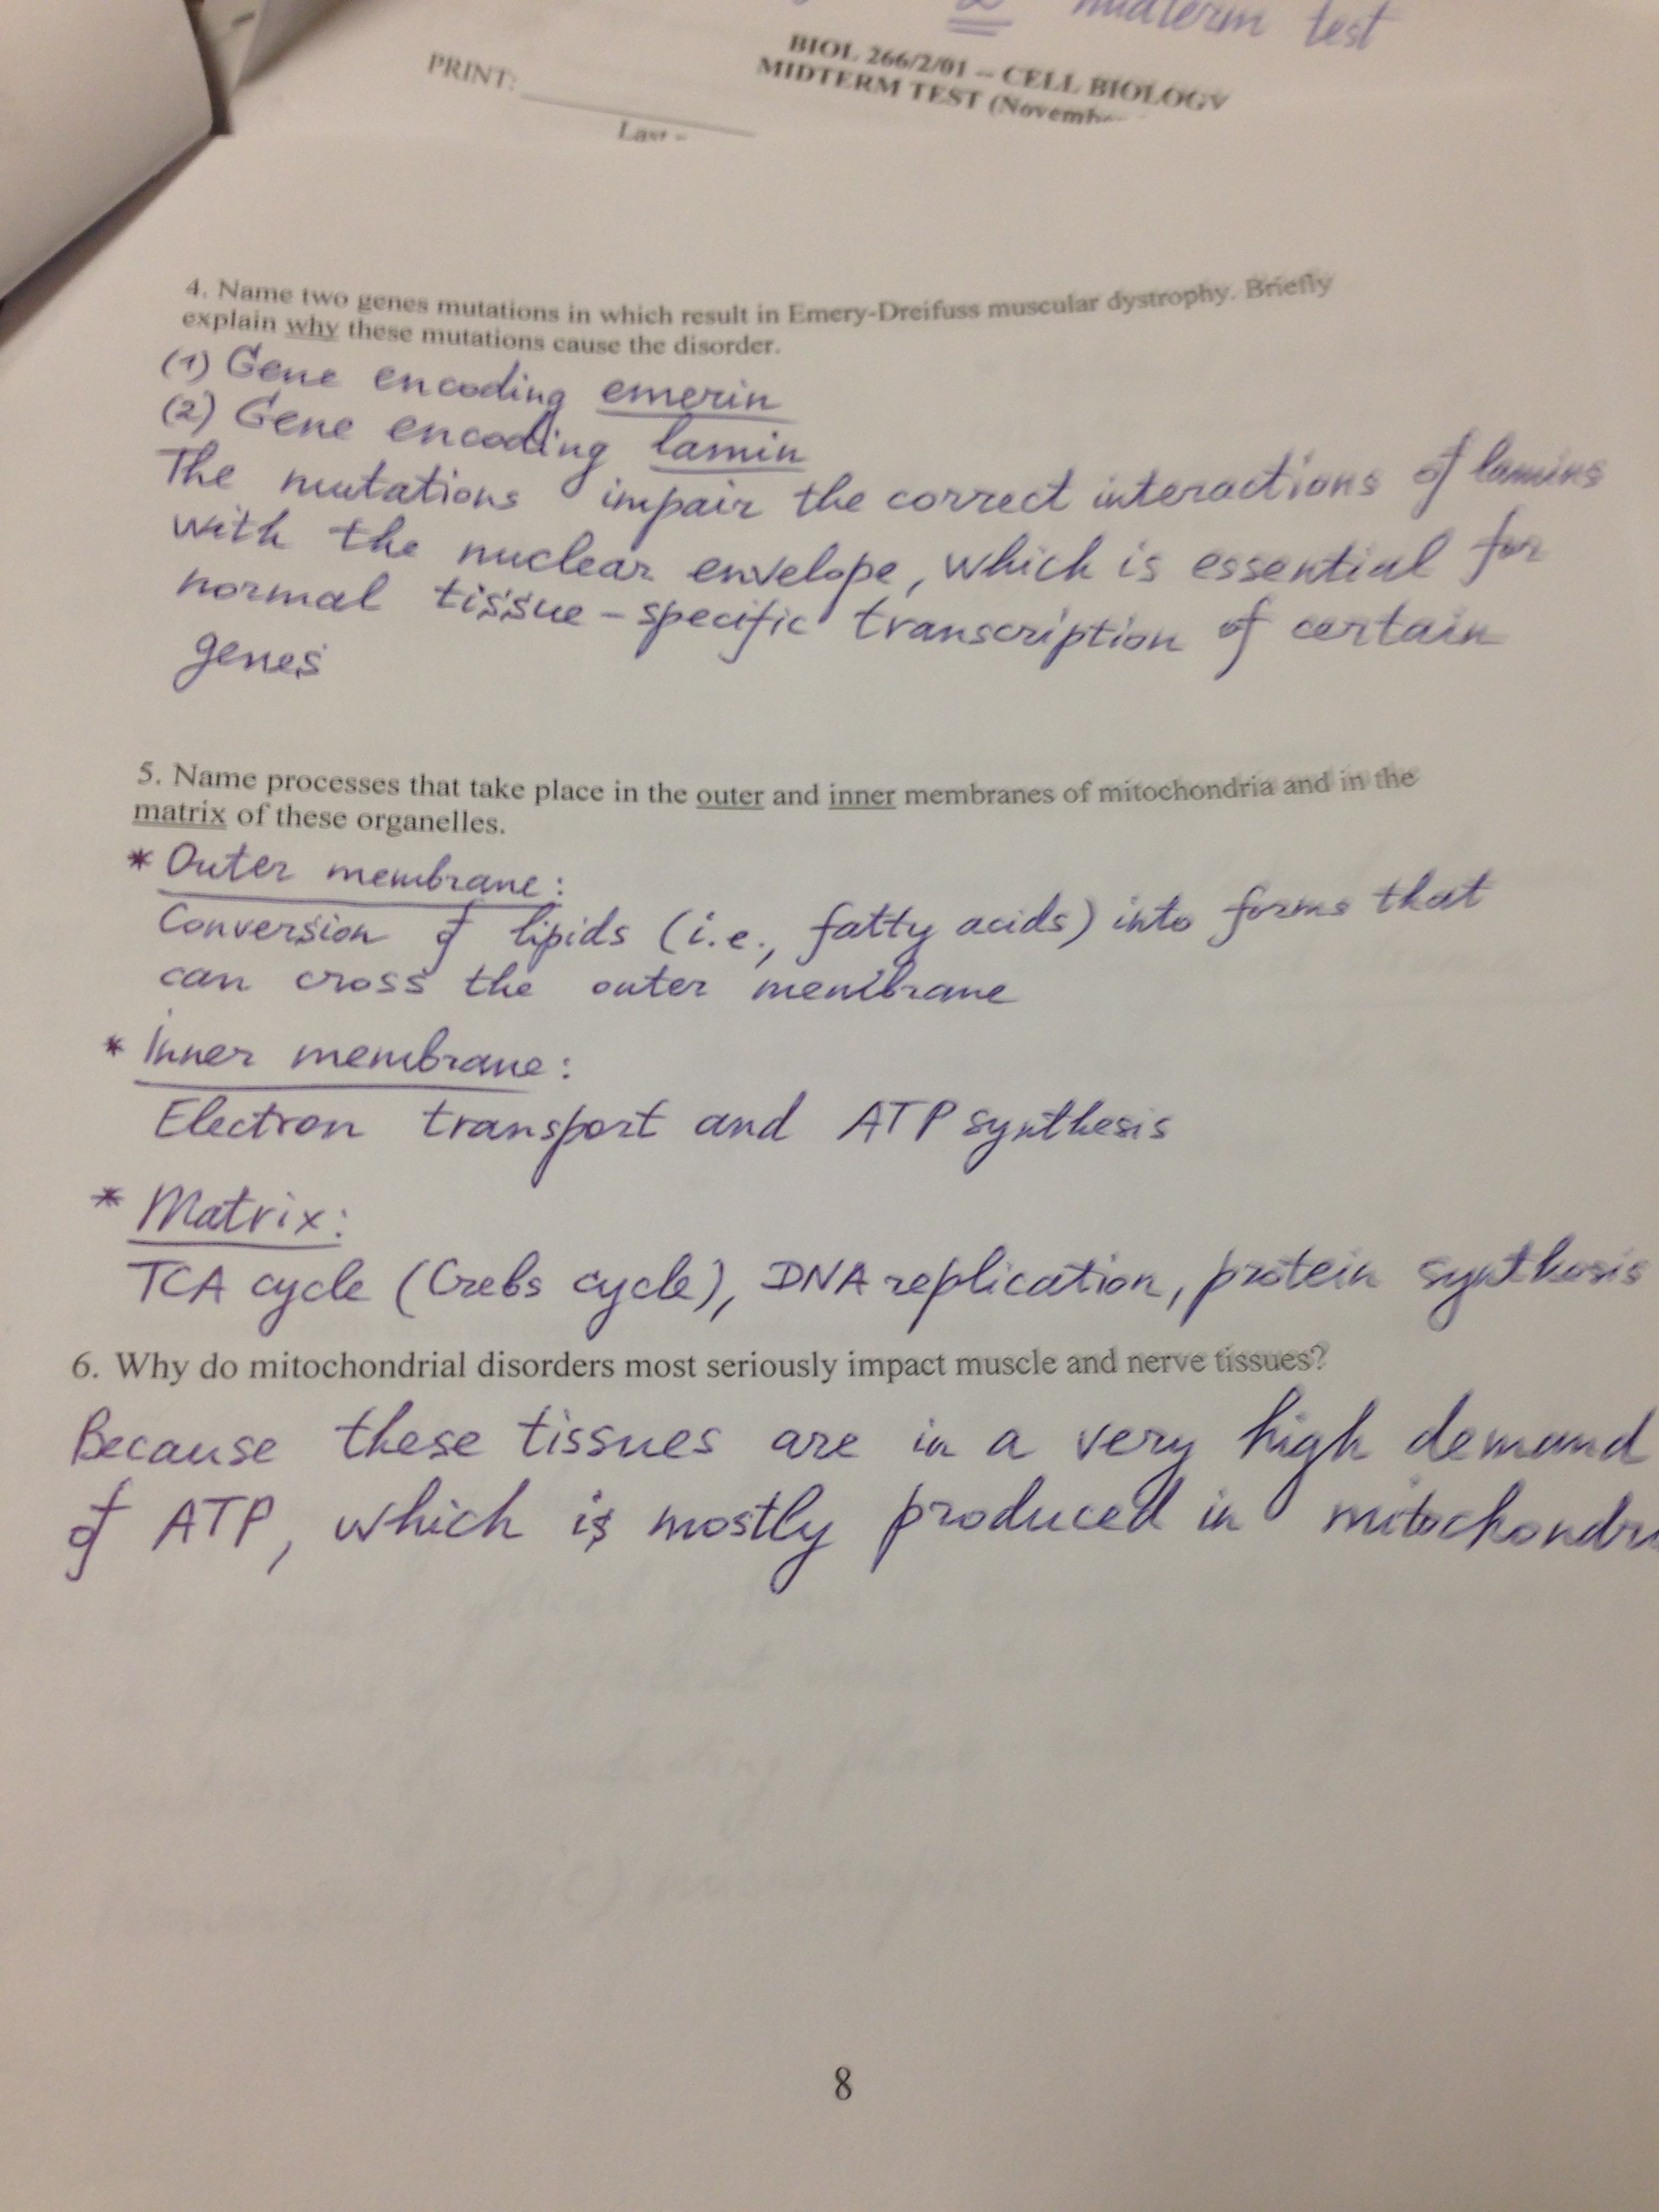 midterm test
BIOL 266/2/01 – CELL BIOLOGY
MIDTERM TEST (Novembe
PRINT:
Last
4. Name two genes mutations in which result in Emery-Dreifuss muscular dystrophy. Briefly
explain why these mutations cause the disorder.
(1) Gene encoding emerin
(2) Gene encoding lamin
The mutations impair the correct interactions of lamins
with the nuclear envelope, which is essential for
normal tissue-specific transcription of certain
genes
5. Name processes that take place in the outer and inner membranes of mitochondria and in the
matrix of these organelles.
* Outer membrane:
Conversion of lipids (i.e., fatty acids) into forms that
can cross the outer membrane
* Inner membrane:
Electron transport and ATP synthesis
* Matrix:
TCA cycle (Crebs cycle), DNA replication, protein synthesis
6. Why do mitochondrial disorders most seriously impact muscle and nerve tissues?
Because these tissues are in a very high demand
of ATP, which is mostly produced in mitochondri
8